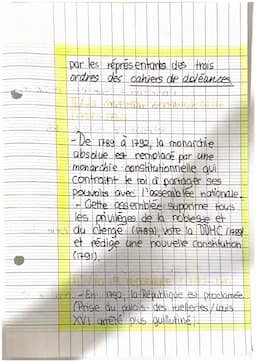 par les réprésentants des trois
ordres des cahiers de doléances
- De 1789 à 1792, la monarchie
absolue est remplacé par une
monarchie constitutionnelle qui
contraint le roi à partager ses
pouvoirs avec l'assemblée nationale.
- Cette assemblée supprime tous
les privilèges de la noblesse et
du clergé (1789), vote la DDHC (1789)
et rédige une nouvelle constitution
(1791).
- En 1792, la République est proclamée
/Prise du palais des tuileries / Louis
XVI arrêté puis guillotiné